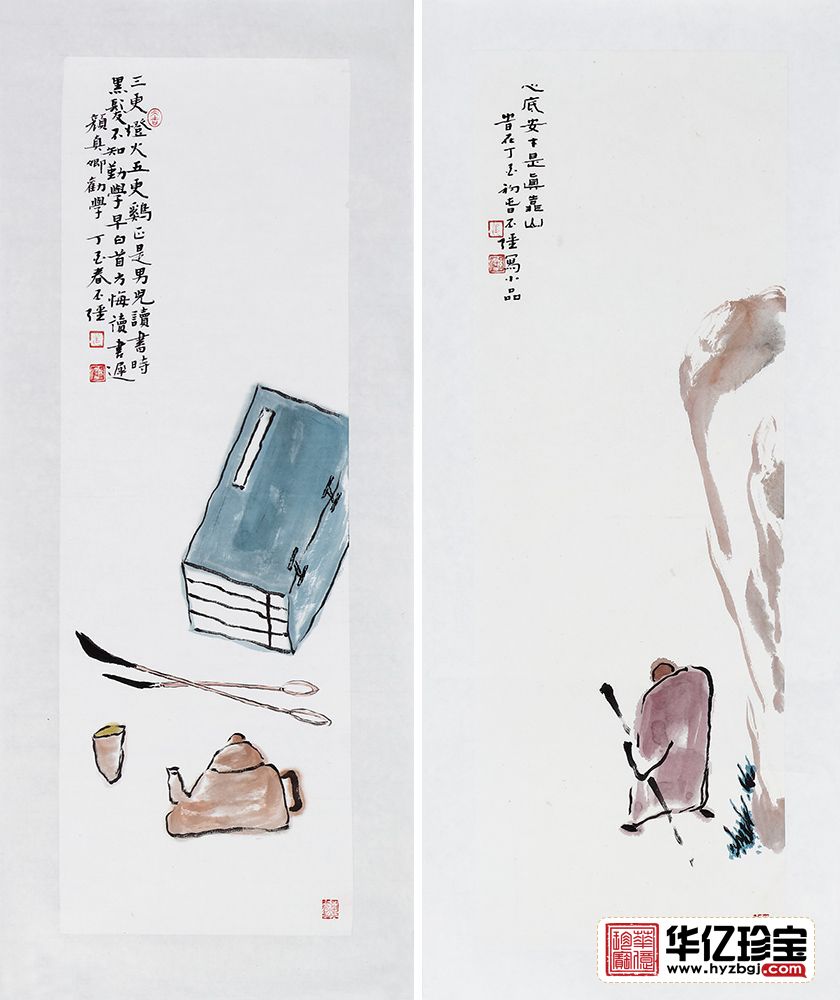 三更燈火五更鷄正是男兒讀書時
黑髮不知勤學早白首方悔讀書遲
顔真卿勸學 丁酉春不
心底安寧是真靠山
不
寫小品
华亿珍宝
www.hyzbgj.com